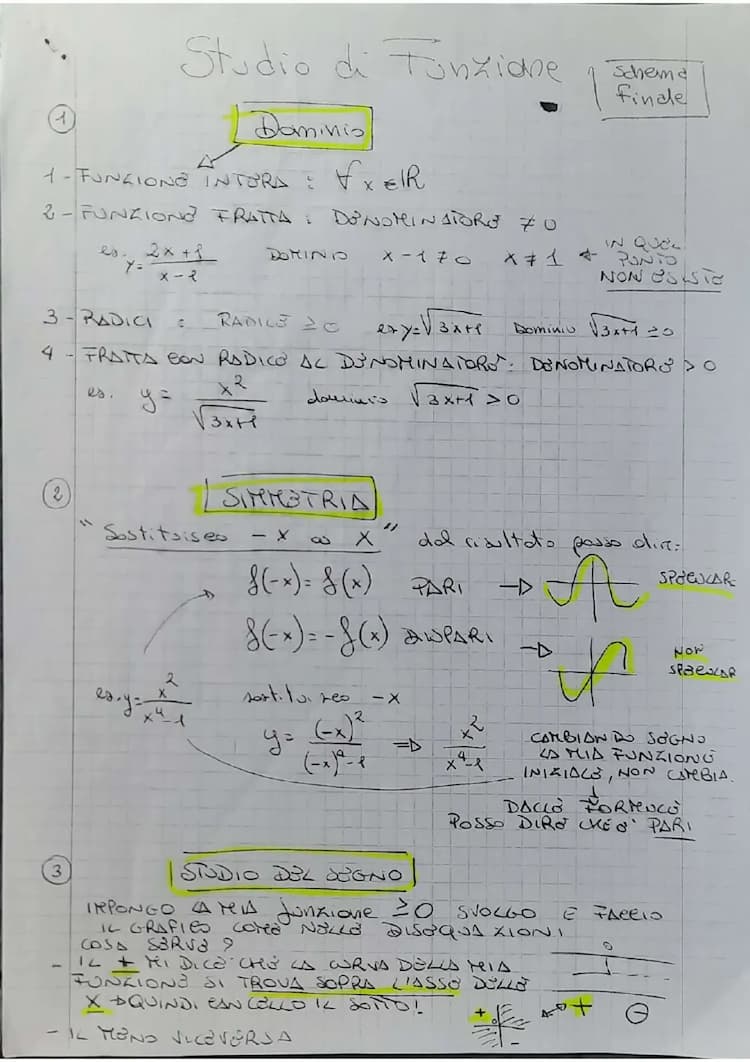 Studio di Funzione
Schema finale
1
Dominio
1 - FUNZIONE INTERA : ∀ x ∈ ℝ
2 - FUNZIONE FRATTA : DENOMINATORE ≠ 0
es. y = (2x+1)/(x-1) DOMINIO x-1≠0 x≠1 ← IN QUEL PUNTO NON ESISTE
3 - RADICI : RADICE ≥0 es y=√(3x+1) Dominio √(3x+1) ≥0
4 - FRATTA CON RADICE AL DENOMINATORE: DENOMINATORE > 0
es. y = x²/√(3x+1) dominio √(3x+1) > 0
2
SIMMETRIA
"Sostituisco -x a x" dal risultato posso dire:
f(-x) = f(x) PARI → SPECULARE
f(-x) = -f(x) DISPARI → NON SPECULAR
es. y = x²/(x⁴-1) sostituisco -x
y = (-x)²/((-x)⁴-1) ⇒ x²/(x⁴-1)
CAMBIANDO SEGNO
LA MIA FUNZIONE
INIZIALE, NON CAMBIA.
↓
DALLE FORMULE
POSSO DIRE CHE È PARI
3
STUDIO DEL SEGNO
IMPONGO LA MIA funzione ≥0 SVOLGO E FACCIO
IL GRAFICO COME NELLE DISEQUAZIONI
COSA SERVE?
- IL + MI DICE CHE LA CURVA DELLA MIA
FUNZIONE SI TROVA SOPRA L'ASSE DELLE
X → QUINDI CANCELLO IL SOTTO!
0
+ - + -
- IL MENO VICEVERSA